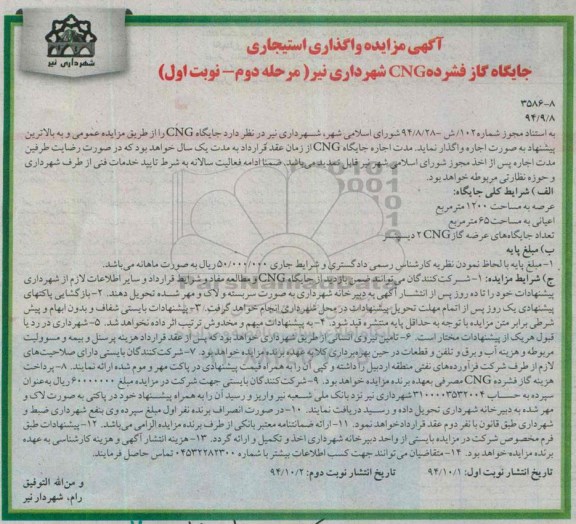 شهرداری نیر
آگهی مزایده واگذاری استیجاری
جایگاه گاز فشرده CNG شهرداری نیر ( مرحله دوم – نوبت اول)
۳۵۸۶-۸
۹۴/۹/۸
به استناد مجوز شماره ۱۰۲/ش -۹۴/۸/۲۸ شورای اسلامی شهر، شهرداری نیر در نظر دارد جایگاه CNG را از طریق مزایده عمومی و به بالاترین
پیشنهاد به صورت اجاره واگذار نماید. مدت اجاره جایگاه CNG از زمان عقد قرارداد به مدت یک سال خواهد بود که در صورت رضایت طرفین
مدت اجاره پس از اخذ مجوز شورای اسلامی شهر نیر قابل تمدید می‌باشد. ضمنا ادامه فعالیت سالانه به شرط تایید خدمات فنی از طرف شهرداری
و حوزه نظارتی مربوطه خواهد بود.
الف ) شرایط کلی جایگاه:
عرصه به مساحت ۱۲۰۰ مترمربع
اعیانی به مساحت ۶۵ مترمربع
تعداد جایگاه‌های عرضه گاز CNG ۲ دیسپنسر
ب) مبلغ پایه
۱- مبلغ پایه با لحاظ نمودن نظریه کارشناس رسمی دادگستری و شرایط جاری ۵۰/۰۰۰/۰۰۰ ریال به صورت ماهانه می‌باشد.
ج) شرایط مزایده: ۱- شرکت‌کنندگان می‌توانند ضمن بازدید از جایگاه CNG و مطالعه مفاد و شرایط قرارداد و سایر اطلاعات لازم از شهرداری
پیشنهادات خود را تا ده روز پس از انتشار آگهی به دبیرخانه شهرداری به صورت سربسته و لاک و مهر شده تحویل دهند. ۲- بازگشایی پاکتهای
پیشنهادی یک روز پس از اتمام مهلت تحویل پیشنهادات در محل شهرداری انجام خواهد گرفت. ۳- پیشنهادات بایستی شفاف و بدون ابهام و پیش
شرطی برابر متن مزایده با توجه به حداقل پایه منتشر قید شود. ۴- به پیشنهادات مبهم و مخدوش ترتیب اثر داده نخواهد شد. ۵- شهرداری در رد یا
قبول هریک از پیشنهادات مختار است. ۶- تامین نیروی انسانی از طریق شهرداری خواهد بود که پس از عقد قرارداد هزینه پرسنل و بیمه و مسوولیت
مربوطه و هزینه آب و برق و تلفن و قطعات در حین بهره‌برداری کلا به عهده برنده مزایده خواهد بود. ۷- شرکت‌کنندگان بایستی دارای صلاحیت‌های
لازم از طرف شرکت فرآورده‌های نفتی منطقه اردبیل را داشته و کپی آن را به همراه قیمت پیشنهادی در پاکت مهر و موم شده ارائه نمایند. ۸- پرداخت
هزینه گاز فشرده CNG مصرفی بعهده برنده مزایده خواهد بود. ۹- شرکت‌کنندگان بایستی جهت شرکت در مزایده مبلغ ۶۰۰۰۰۰۰۰ ریال به عنوان
سپرده به حساب ۳۱۰۰۰۰۳۵۳۲۰۰۴ شهرداری نیر نزد بانک ملی شعبه نیر واریز و رسید آن را به همراه پیشنهاد خود در پاکتی به صورت لاک و
مهر شده به دبیرخانه شهرداری تحویل داده و رسید دریافت نمایند. ۱۰- در صورت انصراف برنده نفر اول مبلغ سپرده وی بنفع شهرداری ضبط و
شهرداری طبق قانون با نفر دوم عقد قرارداد خواهد نمود. ۱۱- ارائه ضمانتنامه معتبر بانکی از طرف برنده مزایده الزامی می‌باشد. ۱۲- پیشنهادات طبق
فرم مخصوص شرکت در مزایده بایستی از واحد دبیرخانه شهرداری اخذ و تکمیل و ارائه گردد. ۱۳- هزینه انتشار آگهی و هزینه کارشناسی به عهده
برنده مزایده خواهد بود. ۱۴- متقاضیان می‌توانند جهت کسب اطلاعات بیشتر با شماره ۰۴۵۳۲۲۸۲۳۰۰ تماس حاصل فرمایند.
تاریخ انتشار نوبت اول: ۹۴/۱۰/۱ تاریخ انتشار نوبت دوم: ۹۴/۱۰/۲
و من‌الله التوفیق
رام، شهردار نیر